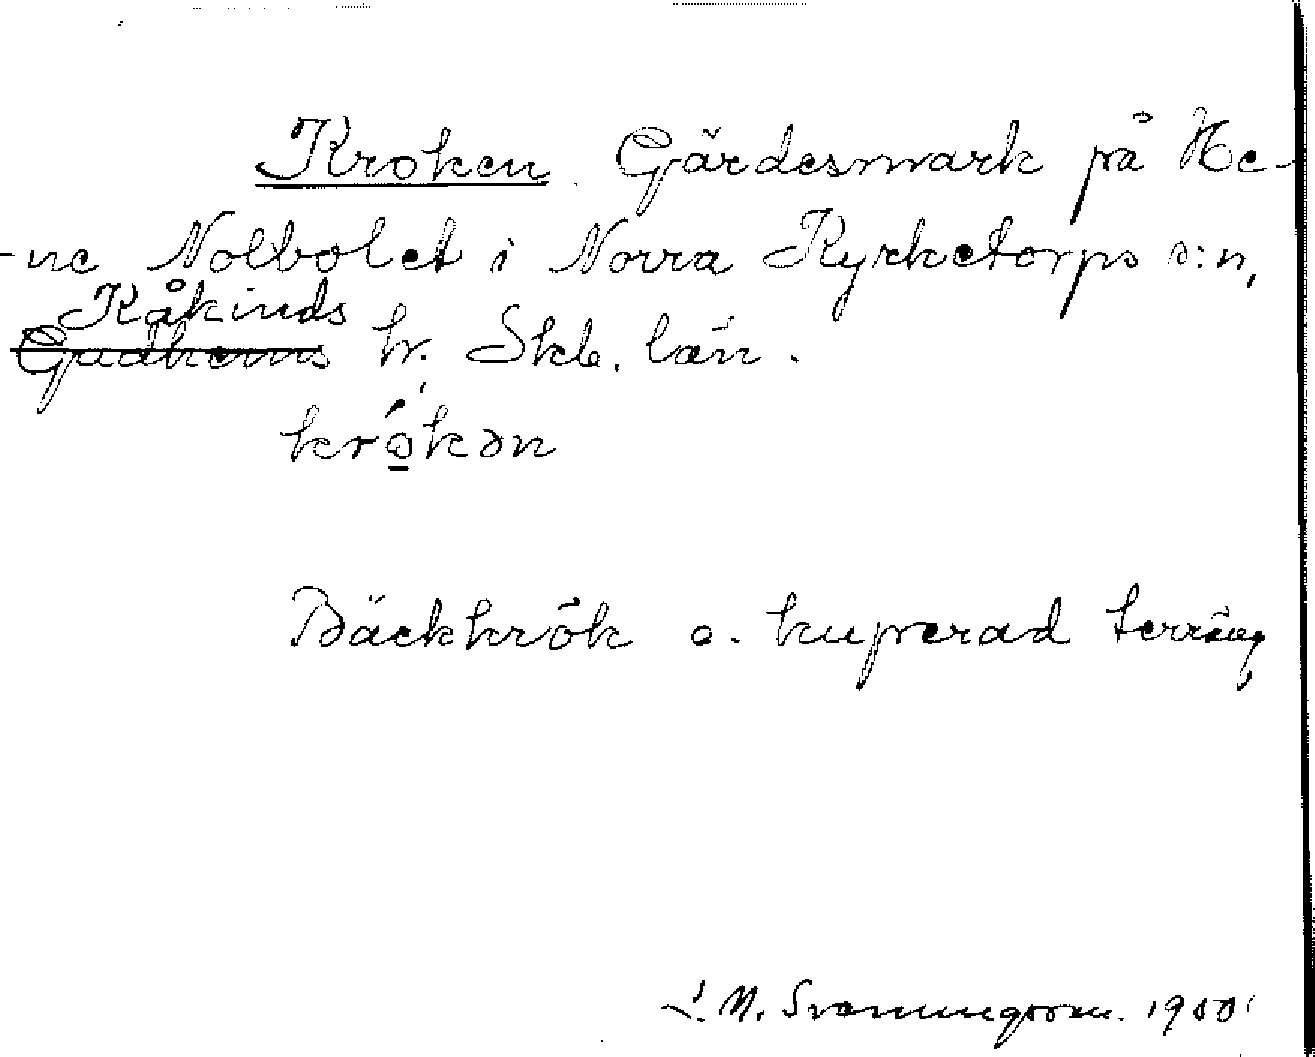 Kroken. Gärdesmark på He-
-ne Nolbolet i Norra Kyrketorps s:n,
Kåkinds
Gudhems hr. Skb. län.
krókən
Bäckkrök o. kuperad terräng
L. N. Svanungsson. 1900